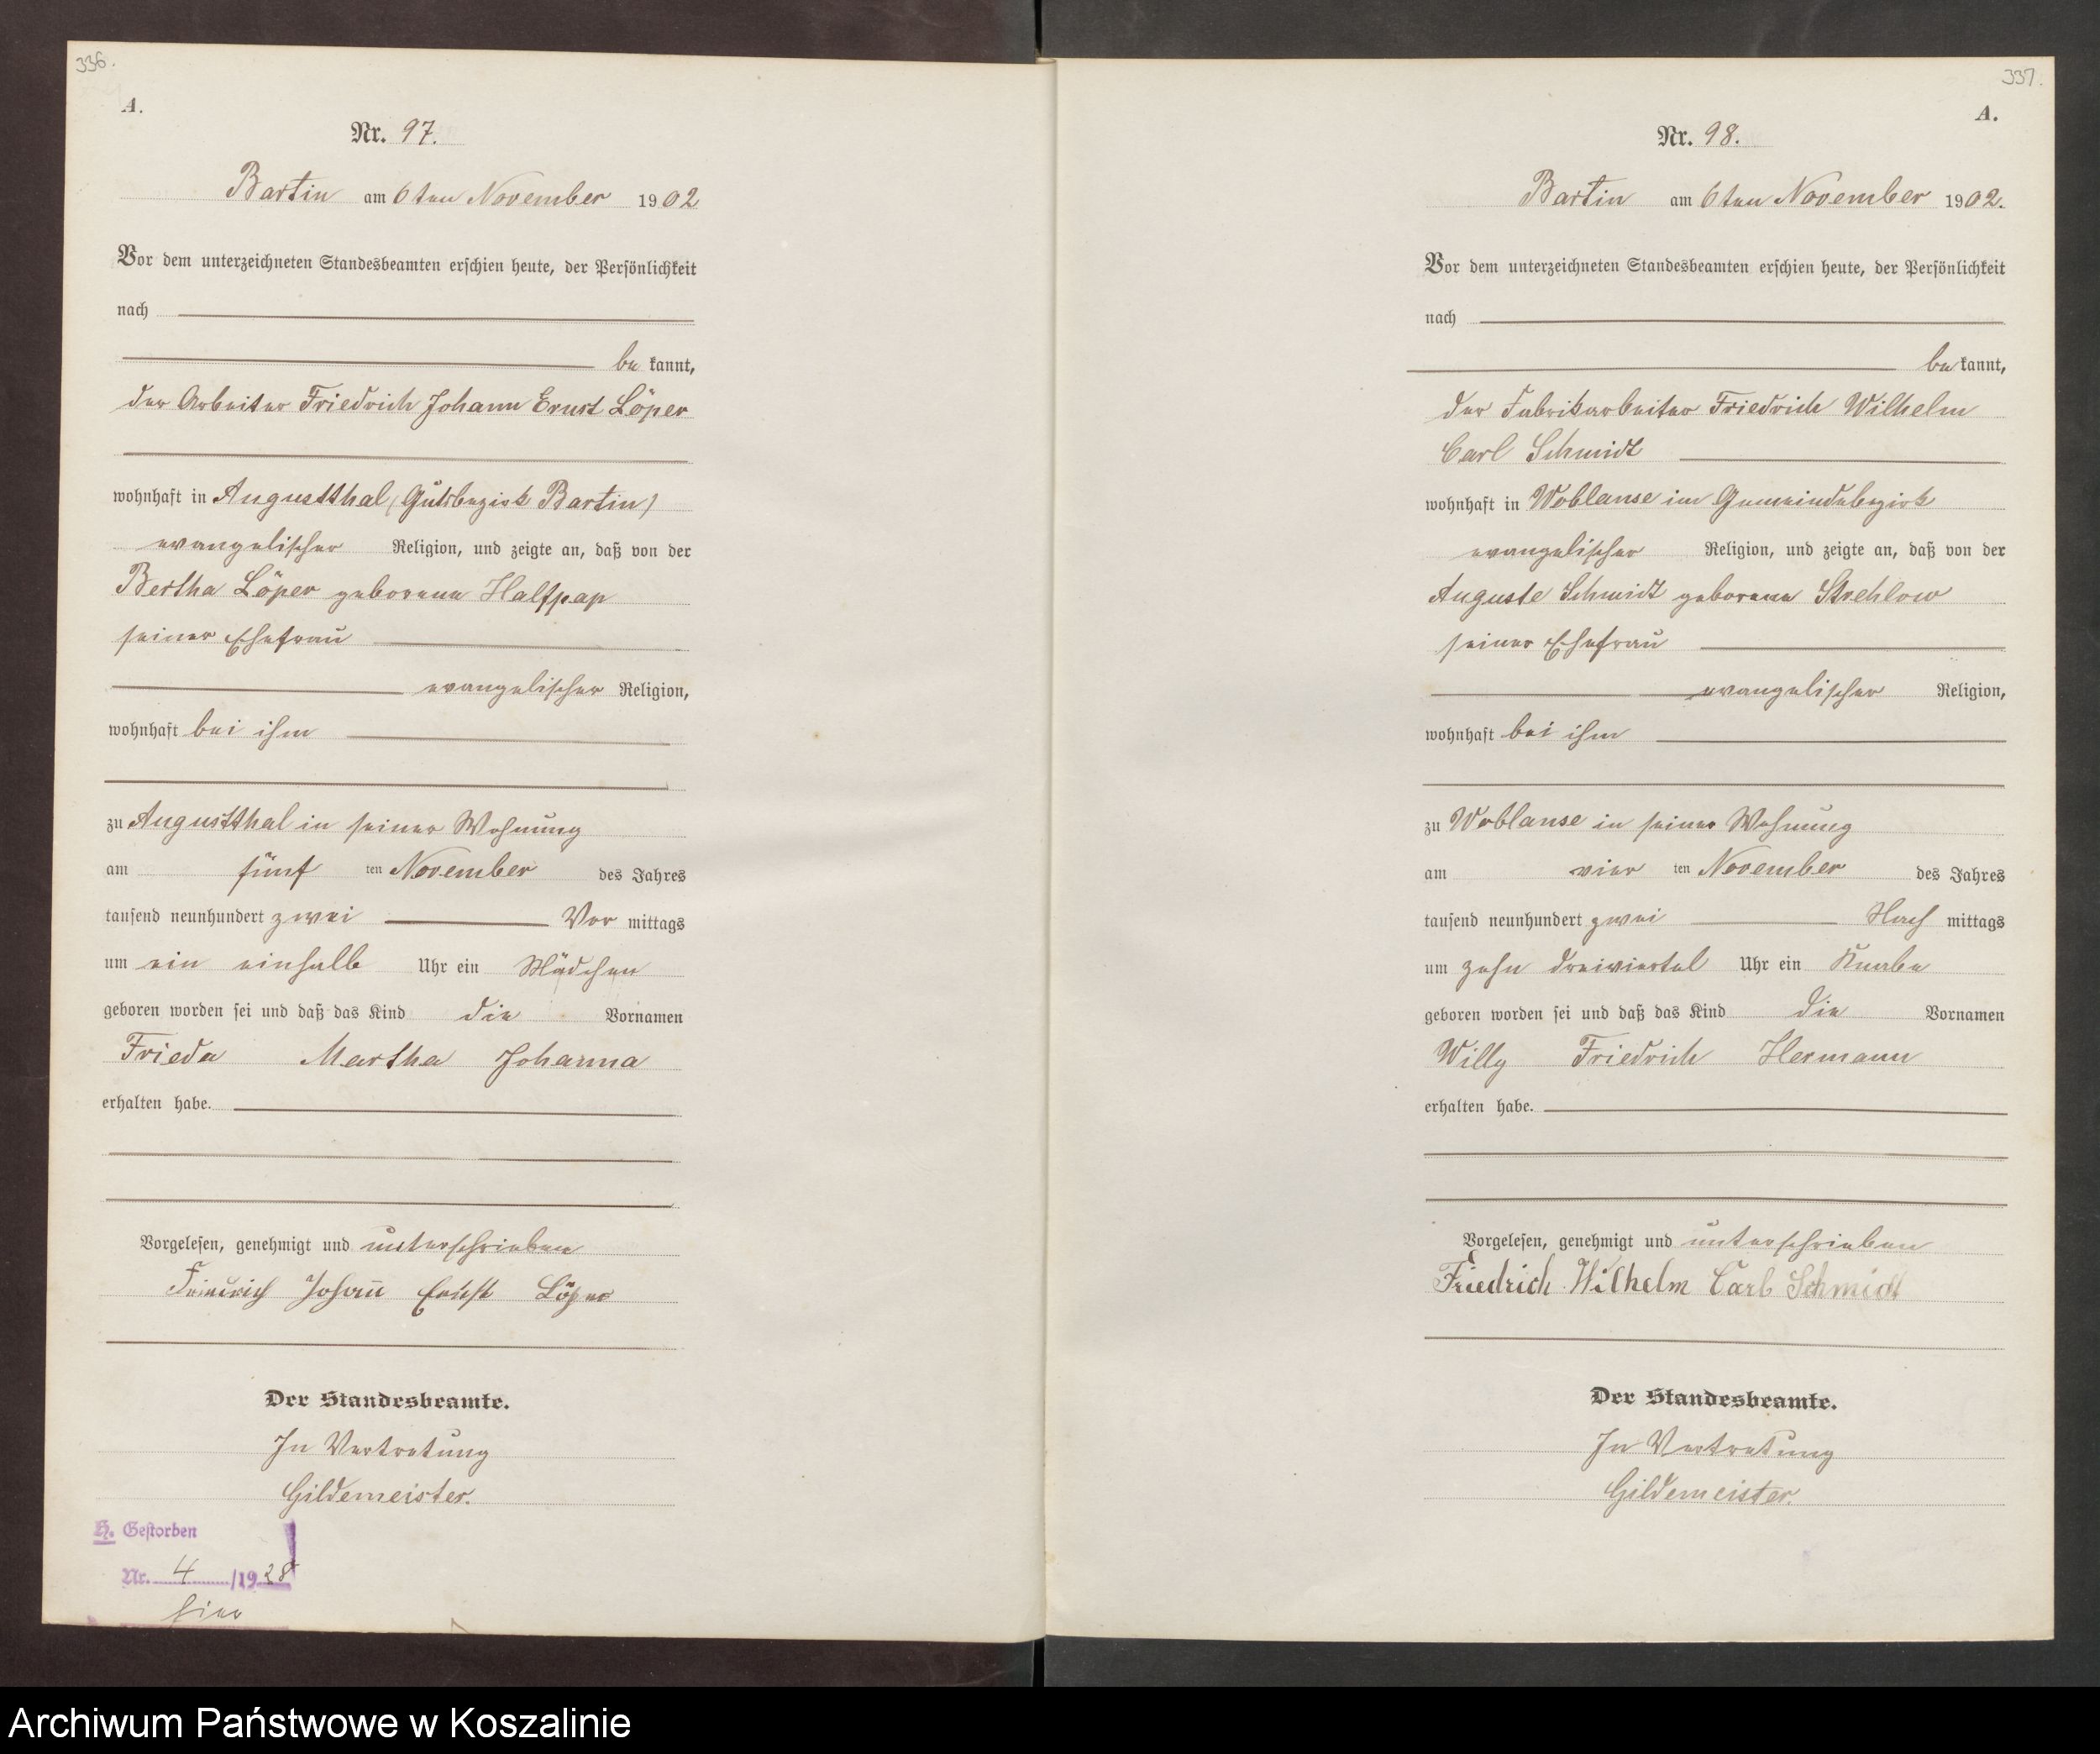 336.
A.
Nr. 97.
Bartin am 6ten November 1902
Vor dem unterzeichneten Standesbeamten erschien heute, der Persönlichkeit
nach
be kannt,
der Arbeiter Friedrich Johann Ernst Löper
wohnhaft in Augustthal (Gutsbezirk Bartin)
evangelischer Religion, und zeigte an, daß von der
Bertha Löper geborene Halfpap
seiner Ehefrau
evangelischer Religion,
wohnhaft bei ihm
zu Augustthal in seiner Wohnung
am fünf ten November des Jahres
tausend neunhundert zwei Vor mittags
um ein einhalb Uhr ein Mädchen
geboren worden sei und daß das Kind die Vornamen
Frieda Martha Johanna
erhalten habe.
Vorgelesen, genehmigt und unterschrieben
Friedrich Johann Ernst Löper
Der Standesbeamte.
In Vertretung
Gildemeister.
H. Gestorben
Nr. 4 /1928
hier
337.
A.
Nr. 98.
Bartin am 6ten November 1902.
Vor dem unterzeichneten Standesbeamten erschien heute, der Persönlichkeit
nach
be kannt,
der Fabrikarbeiter Friedrich Wilhelm
Carl Schmidt
wohnhaft in Woblanse im Gemeindebezirk
evangelischer Religion, und zeigte an, daß von der
Auguste Schmidt geborene Strehlow
seiner Ehefrau
evangelischer Religion,
wohnhaft bei ihm
zu Woblanse in seiner Wohnung
am vier ten November des Jahres
tausend neunhundert zwei Nach mittags
um zehn dreiviertel Uhr ein Knabe
geboren worden sei und daß das Kind die Vornamen
Willy Friedrich Hermann
erhalten habe.
Vorgelesen, genehmigt und unterschrieben
Friedrich Wilhelm Carl Schmidt
Der Standesbeamte.
In Vertretung
Gildemeister.
Archiwum Państwowe w Koszalinie